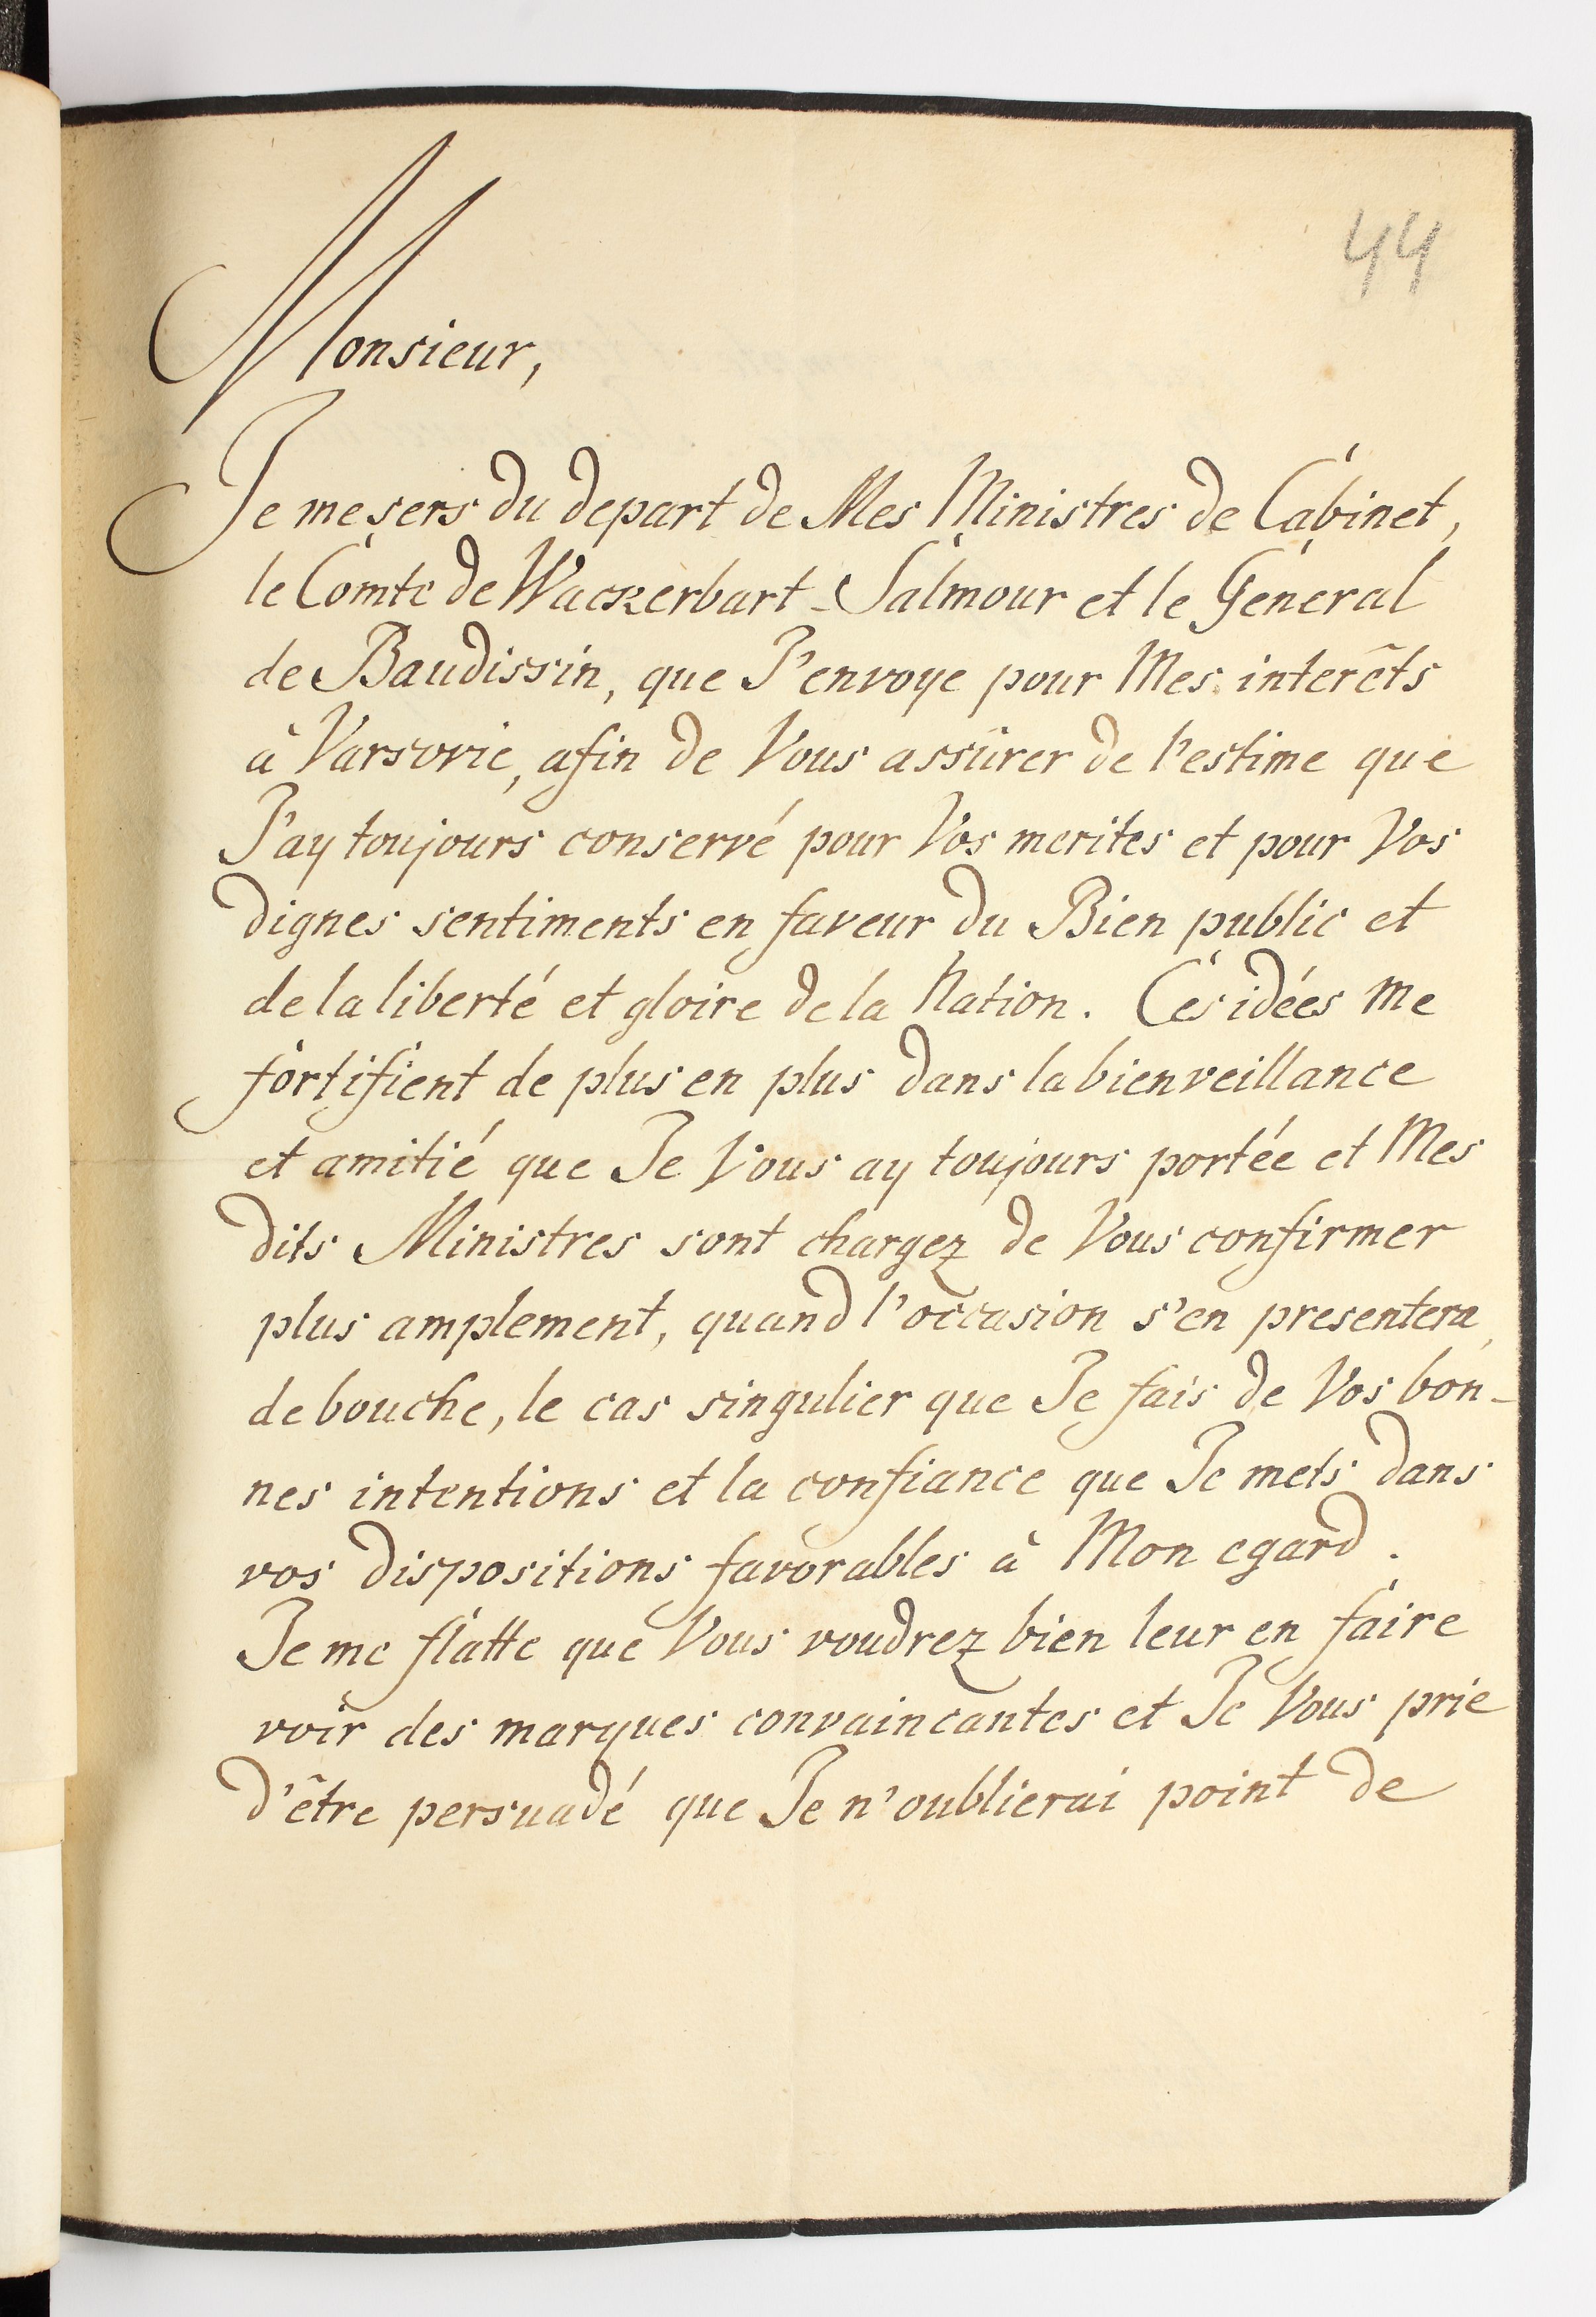 44
Monsieur,
Je me sers du depart de Mes Ministres de Cabinet,
le Comte de Wackerbart-Salmour et le General
de Baudissin, que J'envoye pour Mes interêts
à Varsovie, afin de Vous assûrer de l'estime que
J'ay toujours conservé pour Vos merites et pour Vos
dignes sentiments en faveur du Bien public et
de la liberté et gloire de la Nation. Ces idées me
fortifient de plus en plus dans la bienveillance
et amitié que Je Vous ay toujours portée et Mes
dits Ministres sont chargez de Vous confirmer
plus amplement, quand l'occasion s'en presentera,
de bouche, le cas singulier que Je fais de Vos bon-
nes intentions et la confiance que Je mets dans
vos dispositions favorables à Mon egard.
Je me flatte que Vous voudrez bien leur en faire
voir des marques convaincantes et Je Vous prie
d'être persuadé que Je n'oublierai point de